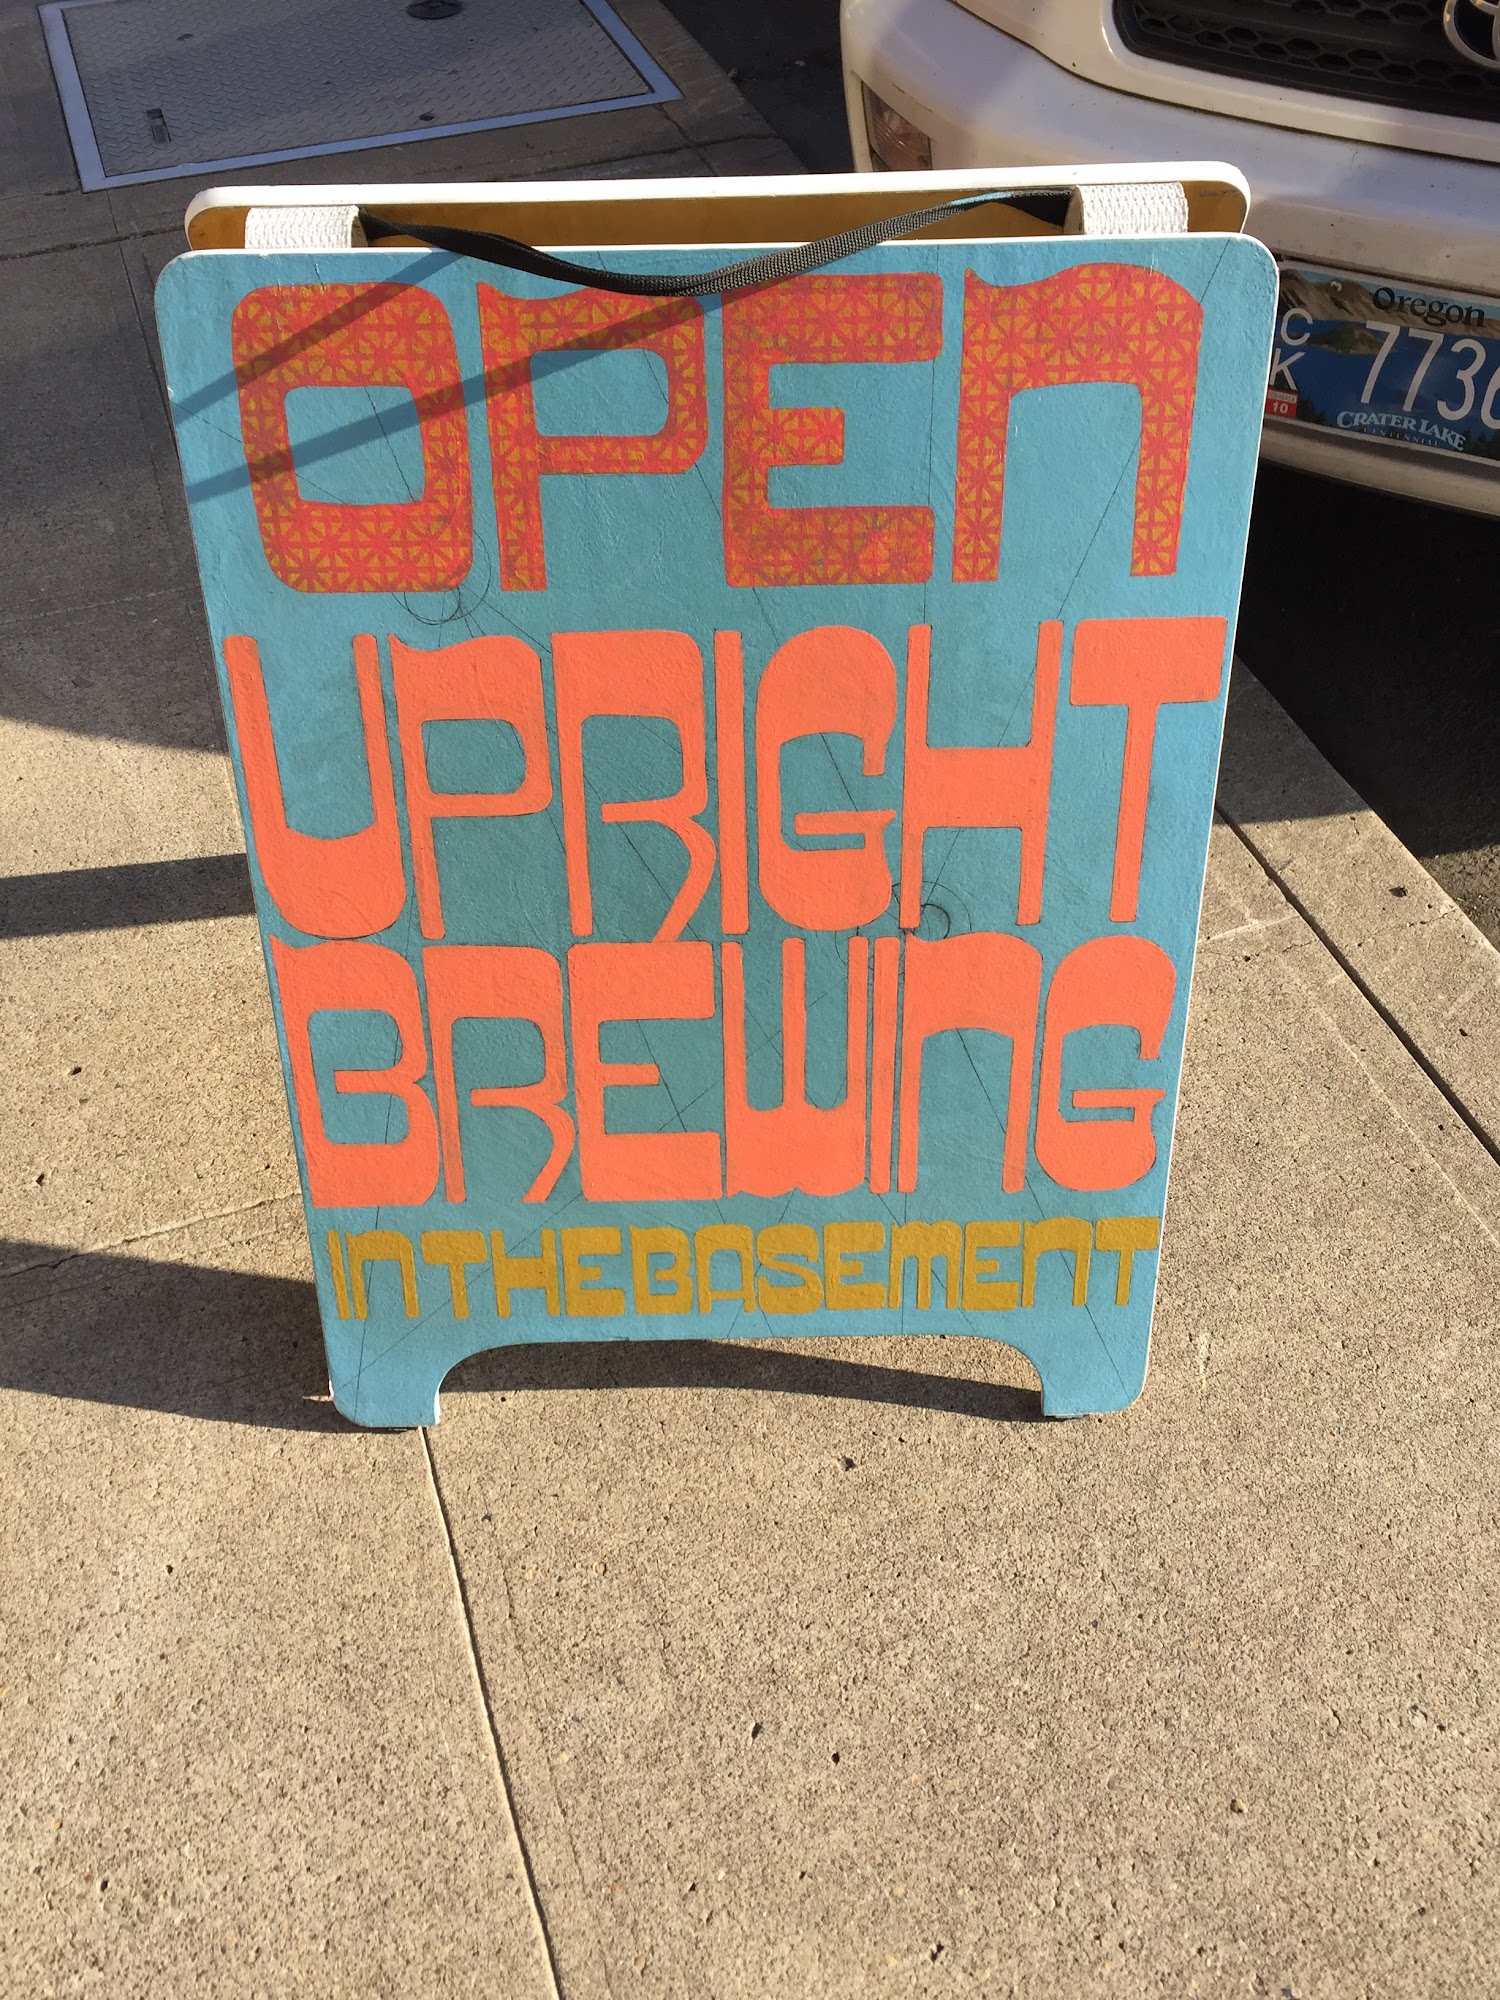 OPEN
UPRIGHT
BREWING
IN THE BASEMENT
Oregon
CK
773
10
CRATER LAKE
CENTENNIAL